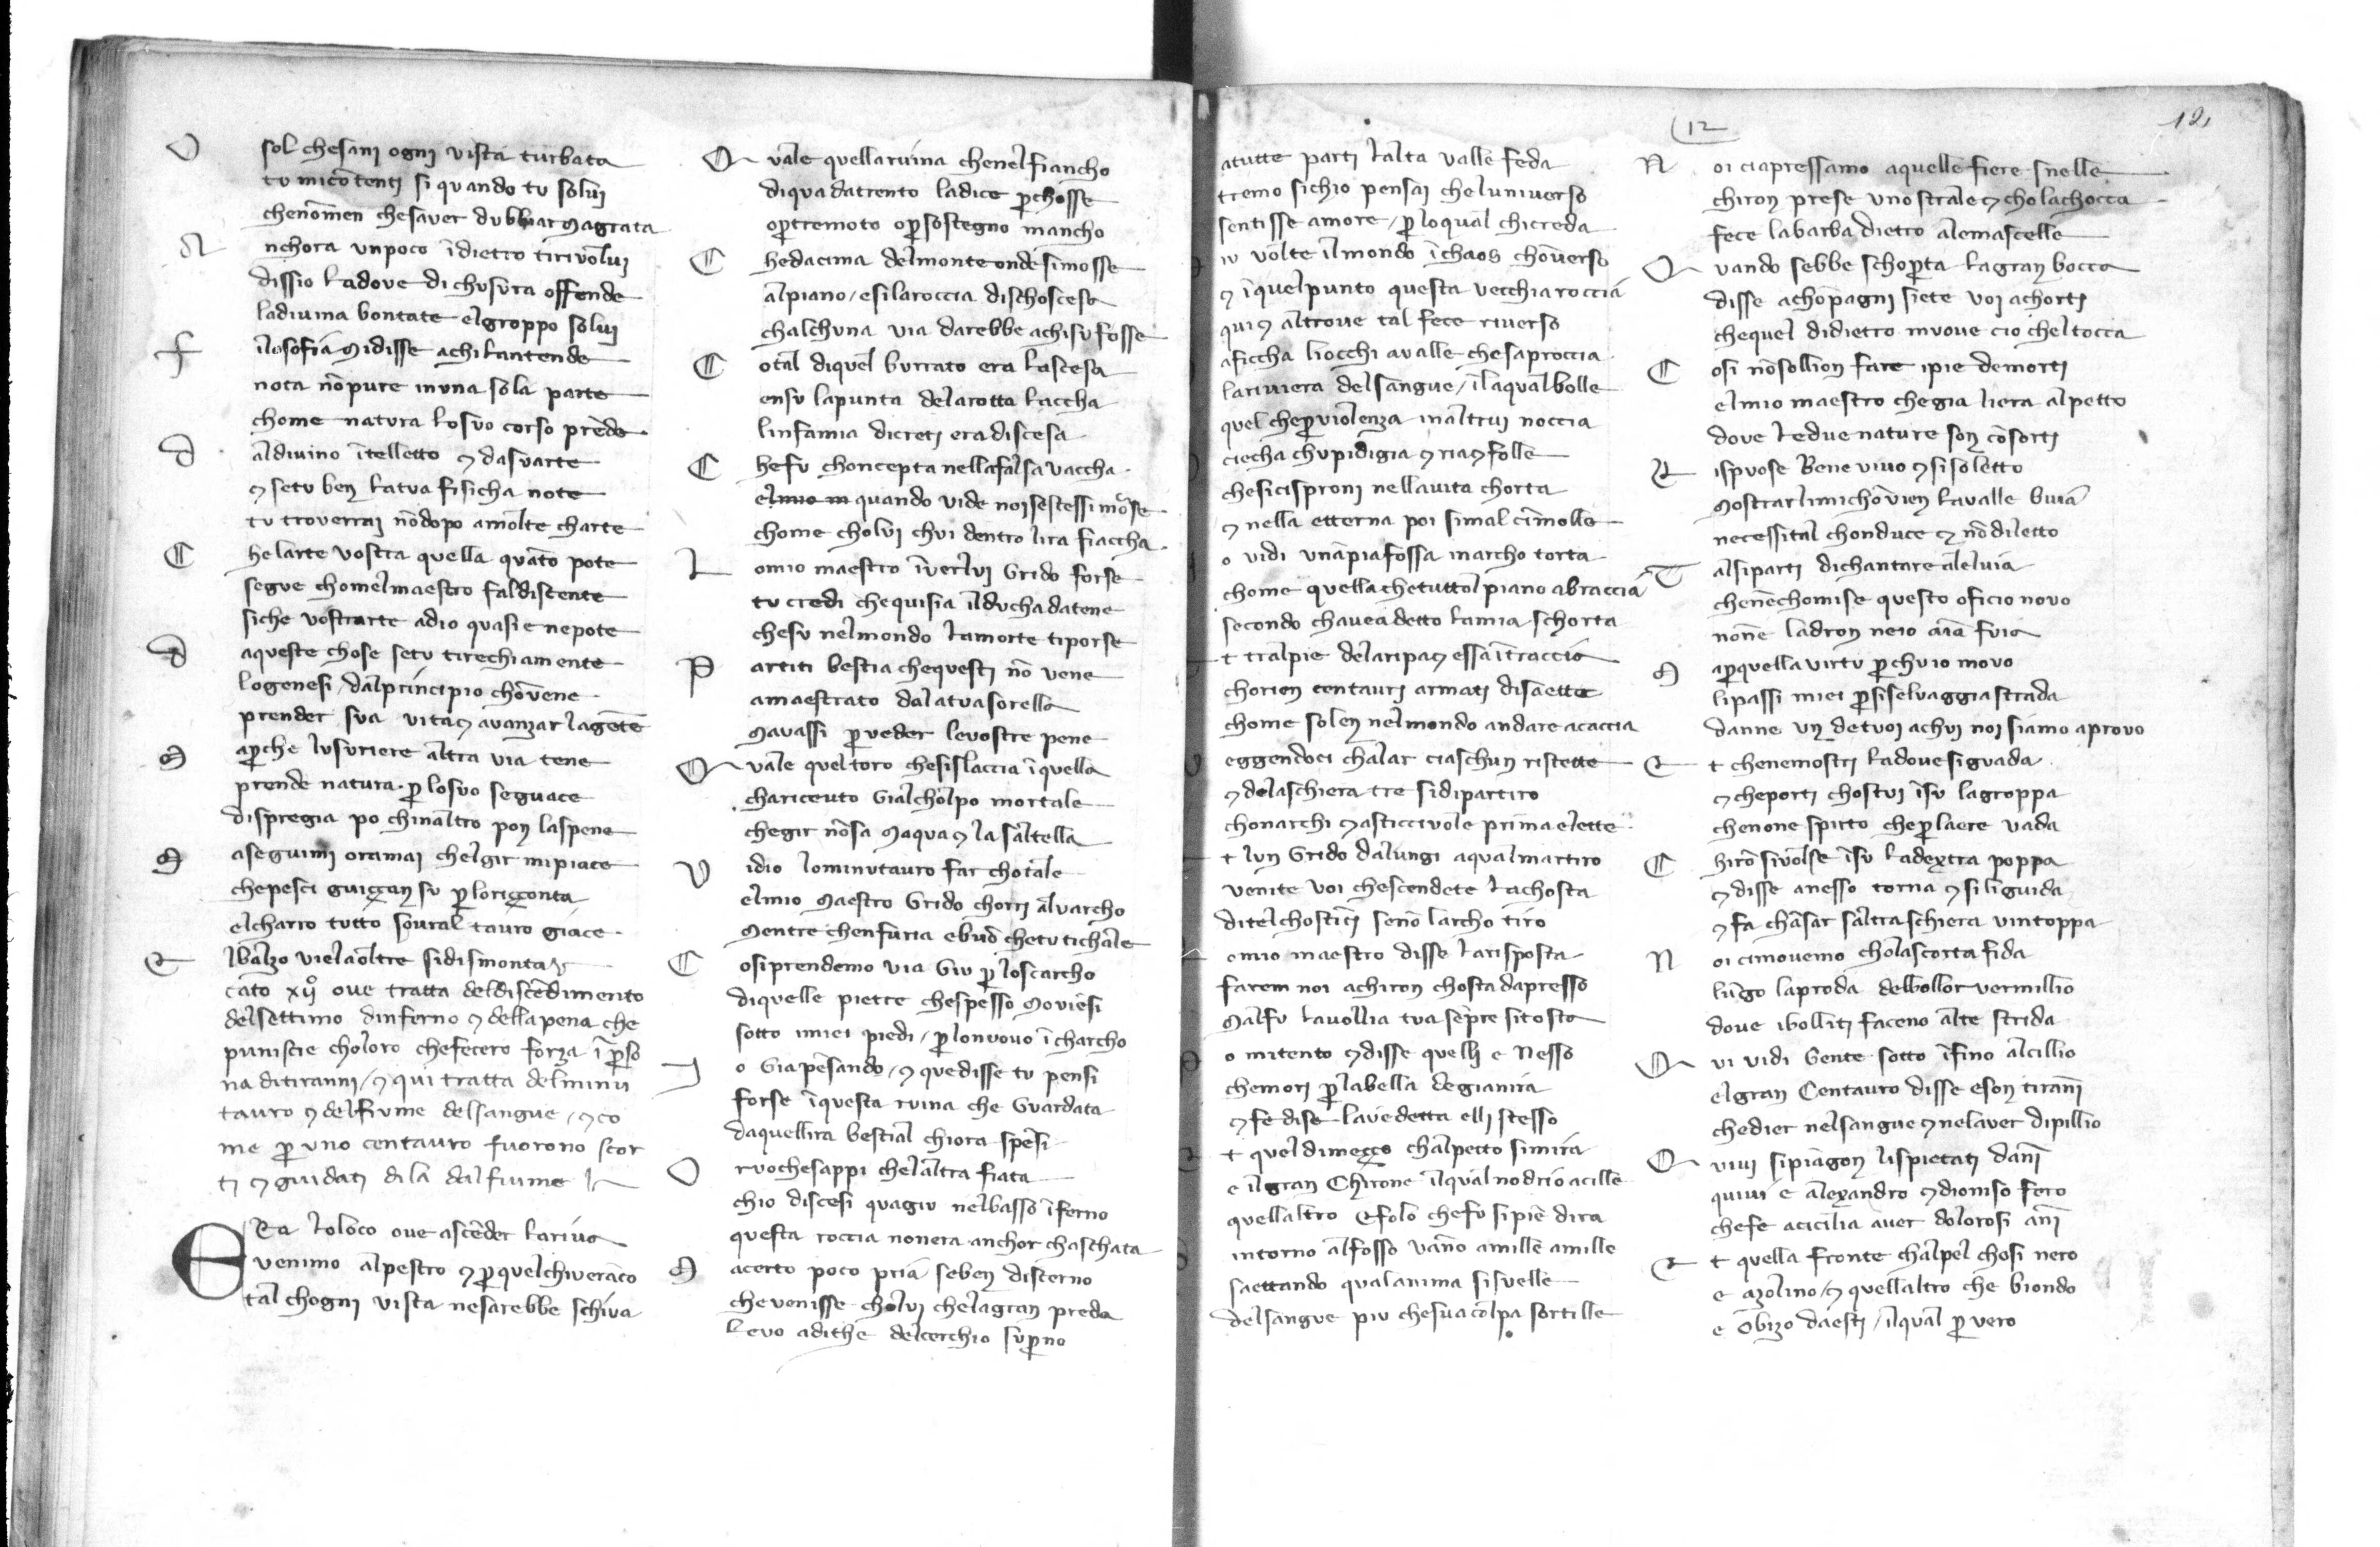 O sol chesani ogni vista turbata
tu micōtenti si quando tu solvi
chenōmen chesaver dubbiar magrata
A nchora unpoco īdietro tirivolvi
dissio ladove dichusura offende
ladivina bontate elgroppo solvi
f ilosofia midisse achi lantende
nota nōpure inuna sola parte
chome natura losuo corso prēde
d aldivino ītelletto ⁊ dasuarte
⁊ setu ben latua fisicha note
tu troverrai nōdopo amolte charte
C helarte vostra quella quāto pote
segue chomelmaestro faldiscente
siche vostrarte adio quasi e nepote
d aqueste chose setu tirechiamente
logenesi dalprincipio chōvene
prender sua vita ⁊ avanzar lagēte
M aꝑche lusuriere altra via tene
prende natura ꝑ losuo seguace
dispregia po chinaltro pon laspene
M aseguimi oramai chelgir mipiace
chepesci guiççan su ꝑ loriççonta
elcharro tutto sovral tauro giace
E lbalzo vielaoltre sidismonta
cāto xij° ove tratta deldiscēdimento
delsettimo dinferno ⁊ della pena che
puniscie choloro chefecero forza ī ꝑso
na ditiranni / ⁊ qui tratta delminu
tauro ⁊ delfiume delsangue / ⁊ co
me ꝑ uno centauro fuorono scor
ti ⁊ guidati di la dal fiume
ERa loloco ove ascēder lariva
venimo alpestro ⁊ ꝑ quelchiveranco
tal chogni vista nesarebbe schiva
Q uale quellaruina chenelfiancho
diqua datrento ladice ꝑchosse
oꝑtremoto oꝑsostegno mancho
C hedacima delmonte onde simosse
alpiano / esilaroccia dischoscesa
chalchuna via darebbe achisufosse
C otal diquel burrato era lascesa
ensu lapunta delarotta laccha
linfamia dicreti era discesa
C hefu choncepta nellafalsa vaccha
elmio m quando vide noi sestessi morse
chome cholui chui dentro lira fiaccha
L omio maestro īverlui Grido forse
tu credi chequisia ilducha datene
chesu nelmondo lamorte tiporse
P artiti bestia chequesti nō vene
amaestrato dalatuasorella
Mavassi ꝑ veder levostre pene
Q uale quel toro chesislaccia īquella
chariceuto Gialcholpo mortale
chegir nōsa Maqua ⁊ la saltella
V idio lominutauro far chotale
elmio Maestro Grido chorri alvarcho
Mentre chenfuria ebuō chetu tichale
C osiprendemo via Giu ꝑ loscarcho
diquelle pietre chespesso Moviēsi
sotto imiei piedi / ꝑ lonuovo īcharcho
I o Giapēsando / ⁊ quedisse tu pensi
forse īquesta ruina che Guardata
daquellira bestial chiora spēsi
O ruochesappi chelaltra fiata
chio discesi quagiu nelbasso īferno
questa roccia nonera anchor chaschata
M acerto poco pria seben discerno
chevenisse cholui chelagran preda
levo adithe delcerchio suꝑno
12
12
atutte parti lalta valle feda
tremo sichio pensai cheluniverso
sentisse amore / ꝑ loqual chicreda
iu volte ilmondo īchaos chōverso
⁊ īquelpunto questa vecchia roccia
qui ⁊ altrove tal fece riverso
aficcha liocchi avalle chesaproccia
lariviera delsangue / īlaqualbolle
quel cheꝑviolenza inaltrui noccia
ciecha chupidigia ⁊ ria ⁊ folle
chesicisproni nellavita chorta
⁊ nella etterna poi simal cimolle
o vidi unāpiafossa inarcho torta
chome quella chetuttol piano abraccia
secondo chavea detto lamia schorta
t tralpie delaripa ⁊ essa ītraccia
chorien centauri armati disaette
chome solen nelmondo andare acaccia
eggendoci chalar ciaschun ristette
⁊ delaschiera tre sidipartiro
chonarchi ⁊ asticcivole prima elette
t lun Grido dalungi aqualmartiro
venite voi chescendete lachosta
ditelchostici senō larcho tiro
omio maestro disse larisposta
farem noi achiron chosta dapresso
Malfu lavollia tua sēpre sitosta
o mitento ⁊ disse quelli e Nesso
chemori ꝑ labella degianira
⁊ fe dise lavēdetta elli stesso
t quel dimeçço chalpecto simira
e ilgran Chirone ilqual nodrio acille
quellaltro e folo chefu sipiē dira
intorno alfosso vāno amille amille
saettando qual anima sisvelle
delsangue piu chesuacolpa sortille
N oi ciapressamo aquelle fiere snelle
chiron prese uno strale ⁊ cho lachocca
fece labarba dietro alemascelle
Q uando sebbe schoꝑta lagran bocca
disse achōpagni siete voi achorti
chequel didietro muove cio cheltocca
C osi nōsollion fare ipie demorti
elmio maestro chegia liera alpetto
dove ledue nature son cōsorti
R ispuose Bene vivo ⁊ si soletto
Mostrarlimichōvien lavalle buia
necessital chonduce ⁊ nō diletto
T alsiparti dichantare aleluia
chenēchomise questo oficio novo
nonē ladron neio aīa fuia
M aꝑquella virtu ꝑ chuio movo
lipassi miei ꝑ siselvaggia strada
danne un detuoi achui noi siāmo aprovo
E t chenemostri ladovesiguada
⁊ cheporti chostui īsu lagroppa
chenone spirto cheꝑ laere vada
C hirō sivolse īsu ladextra poppa
⁊ disse anesso torna ⁊ si liguida
⁊ fa chāsar saltra schiera vintoppa
N oi cimovemo cholascorta fida
lūgo laproda delbollor vermillio
dove ibolliti faceno alte strida
Q ui vidi Gente sotto īfino alcillio
elgran Centauro disse eson tirāni
chedier nelsangue ⁊ nelaver dipillio
Q uivi sipiāgon lispietati dāni
quivi e alexandro ⁊ dioniso fero
chefe acicilia aver dolorosi āni
E t quella fronte chalpel chosi nero
e azolino / ⁊ quellaltro che biondo
e obizo daesti / ilqual ꝑ vero